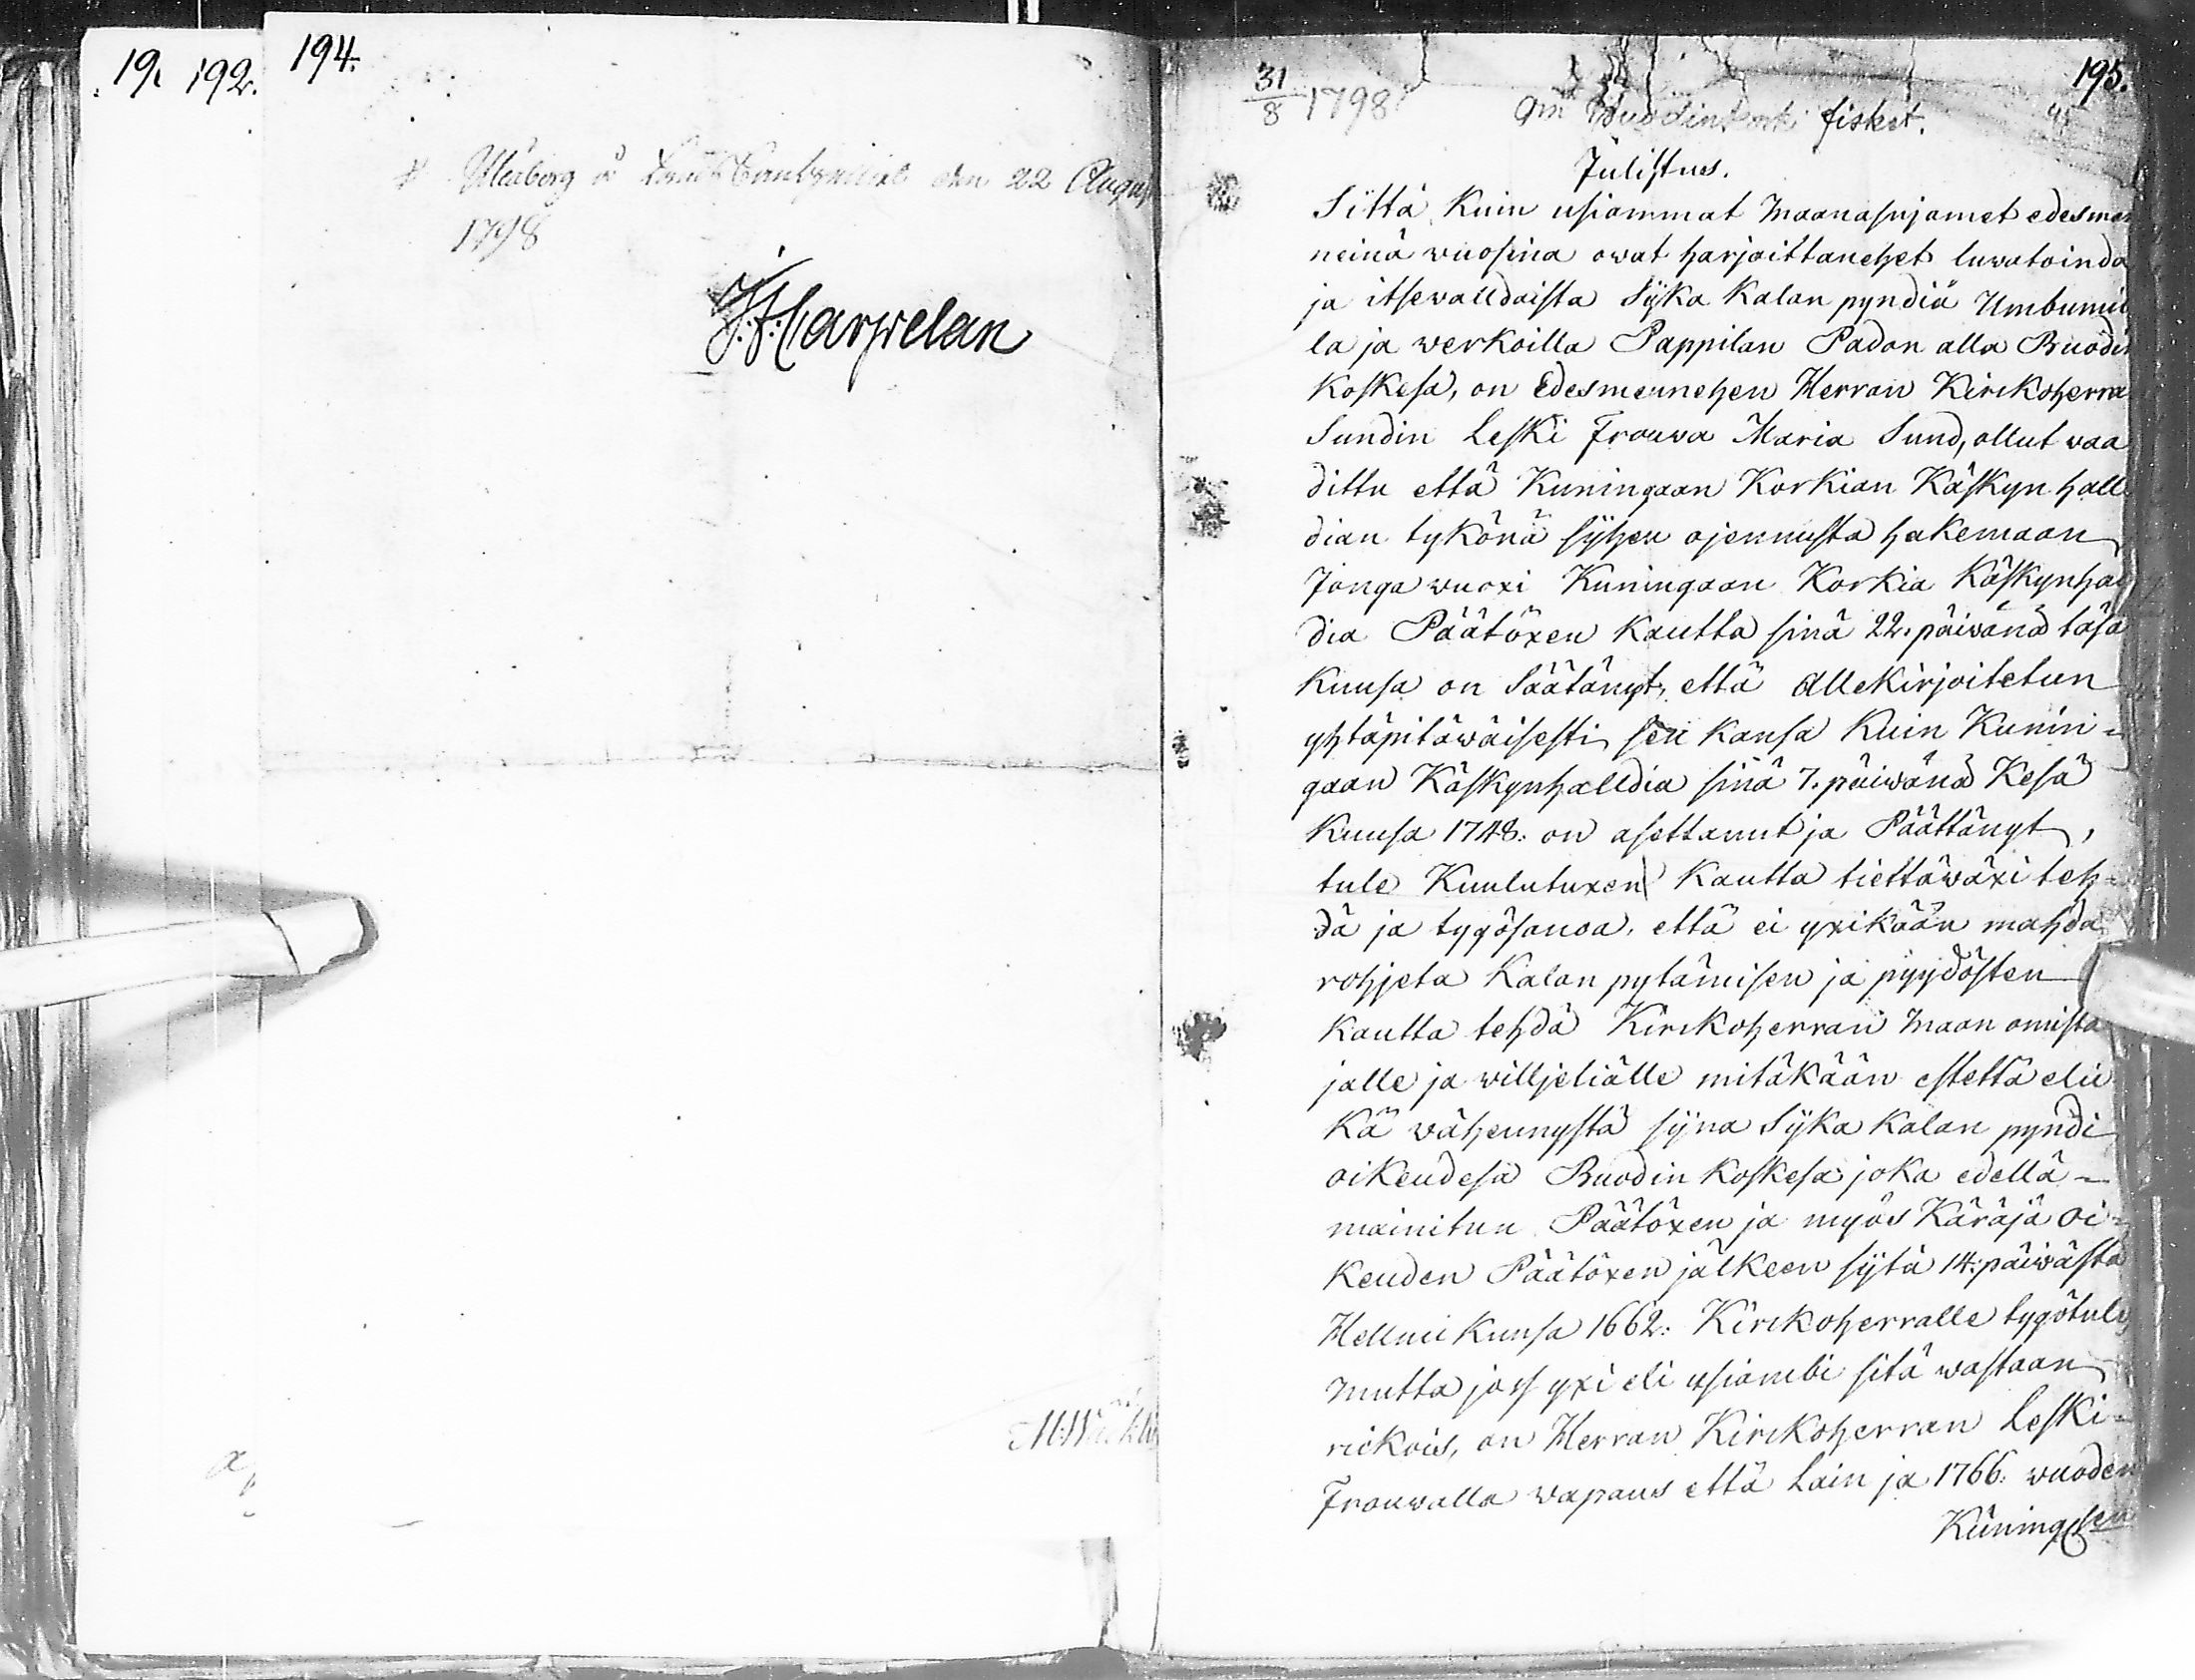 19
192.
194.
Uleåborg å Lands Cantzeliet den 22 Augus
1798
J. F. Carpelan
195.
31/8 1798
Om fisket.
Julistus.
Sittä Kuin usiammat Maanasujamet edesmen
neinä wuosina owat harjoittanehet luwatoinda
ja itsewalldaista Sijka Kalan pyndiä Umbumil
la ja werkoilla Pappilan Padon alla Ruodin
Koskesa, on Edesmennehen Herran Kirckoherra
Sundin Leski Frouwa Maria Sund, ollut waa
dittu että Kuningaan Korkian Käskyn hall
dian tykönä sijhen ojennusta hakemaan
Jonga wuoxi Kuningaan Korkia Käskynhal
dia Päätöxen Kautta sinä 22. päiwänä täsä
Kuusa on Säätänyt, että Allekirjoitetun
yhtäpitäwäisesti sen kansa Kuin Kunin-
gaan Käskynhalldia sinä 7. päiwänä Kesä
Kuusa 1748: on asettanut ja Päättänyt,
tule Kuulutuxen Kautta tiettäwäxi teh-
dä ja tygösanoa, että ei yxikään mahda
rohjeta Kalan pytämisen ja pyydösten
Kautta tehdä Kirckoherran Maan omista
jalle ja williliälle mitäkään estettä elic
kä wähennystä sijna Sijka Kalan pyndi
oikeudesa Ruodin Koskesa joka edellä-
mainitun Päätöxen ja myös Käräjä Oi-
keuden Päätöxen jälkeen sijtä 14: päiwästä
Hellmi Kuusa 1662: Kirckoherralle tygötule,
Mutta jos yxi eli usiambi sitä wastaan
rickois, on Herran Kirckoherran Leski-
Frouwalla wapaus että Lain ja 1766: wuoden
Kuningasen